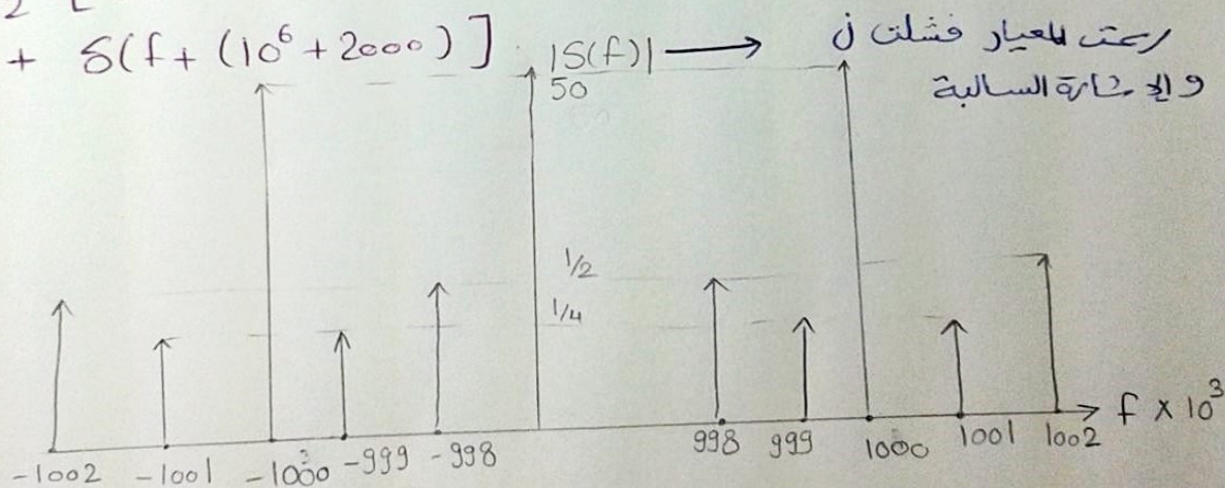 2 [
+ δ(f + (10⁶ + 2000) ]
|S(f)| ⟶ رسمت المعيار فشلت j
والإشارة السالبة
50
1/2
1/4
-1002 -1001 -1000 -999 -998 998 999 1000 1001 1002 f × 10³